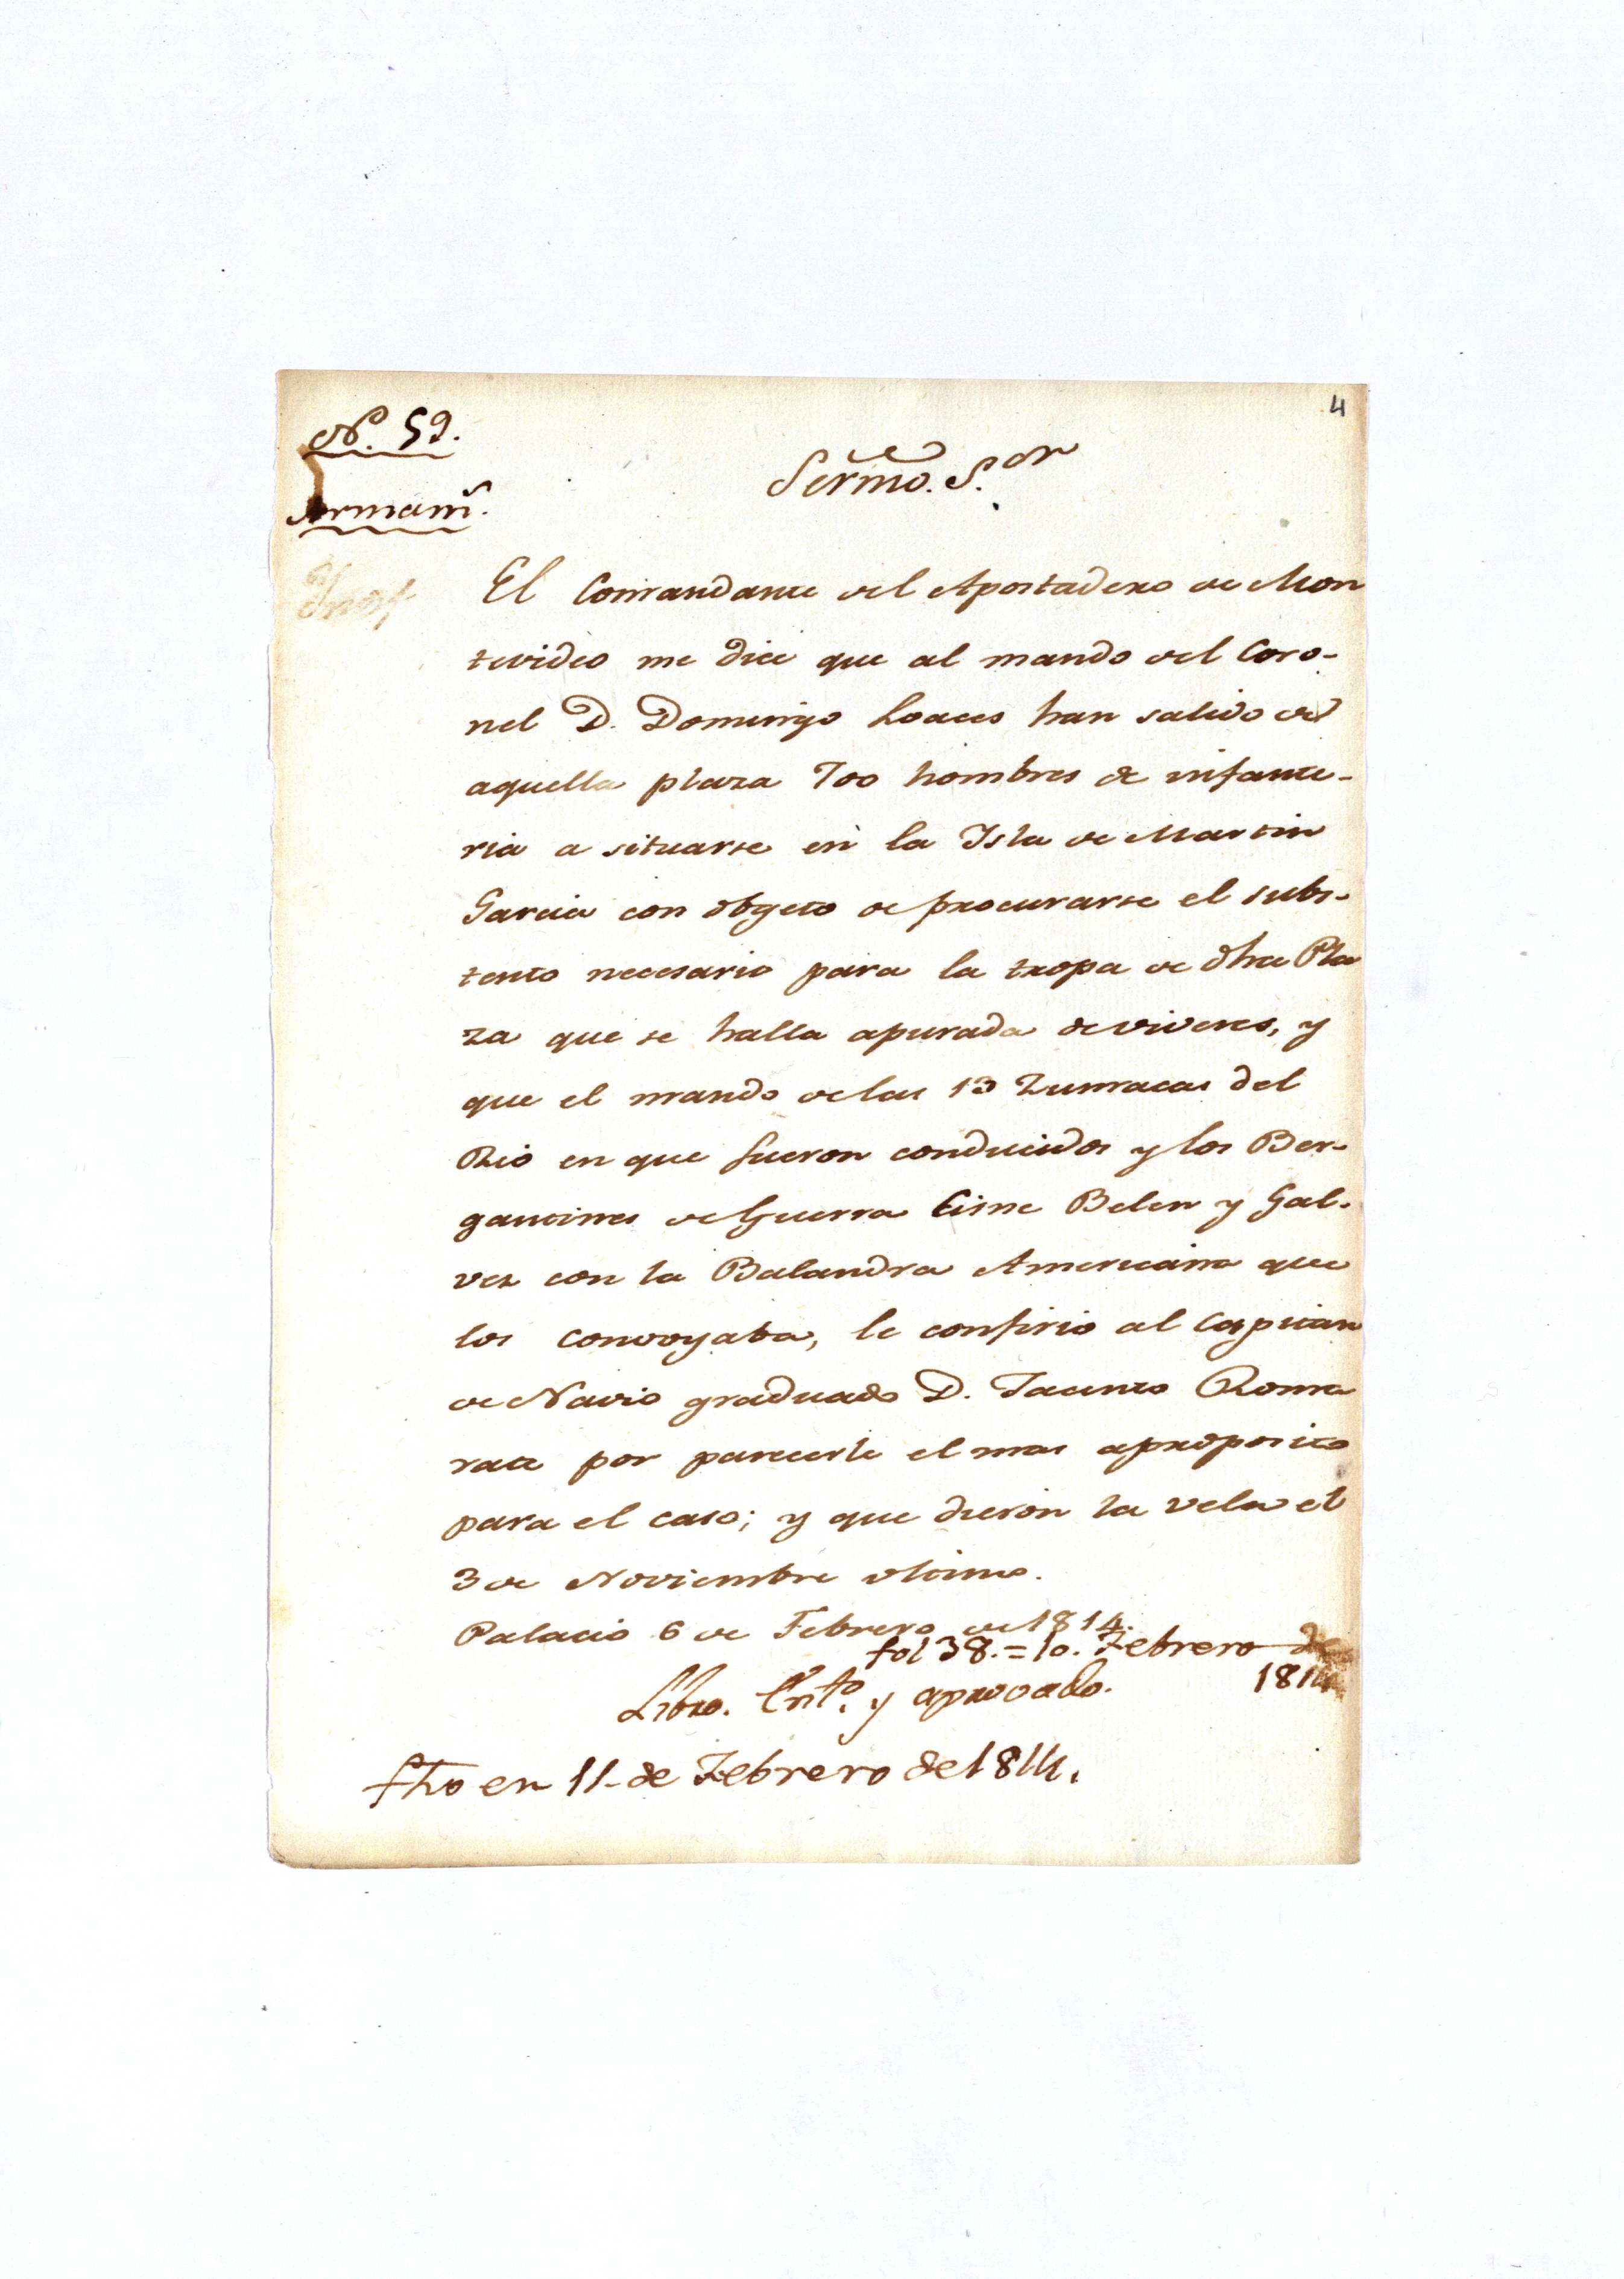 4
Nº. 59.
Sermo. S.or
Armam.
El Comandante del Apostadero de Mon
tevideo me dice que al mando del Coro-
nel D. Domingo Loaces han salido de
aquella plaza 700 hombres de infante-
ria a situarse en la Isla de Martin
Garcia con objeto de procurarse el subs-
tento necesario para la tropa de dha Pla
za que se halla apurada de viveres, y
que el mando de las 13 Zumacas del
Rio en que fueron conducidos y los Ber-
gantines de Guerra Cisne Belen y Gal-
vez con la Balandra Americana que
los convoyaba, le confirio al Capitan
de Navio graduado D. Jacinto Roma
rate por parecerle el mas aproposito
para el caso; y que dieron la vela el
3 de Noviembre ultimo.
Palacio 6 de Febrero de 1814.
fol 38. = 10. Febrero de
1814
y aprovado.
fho en 11 de Febrero de 1814.